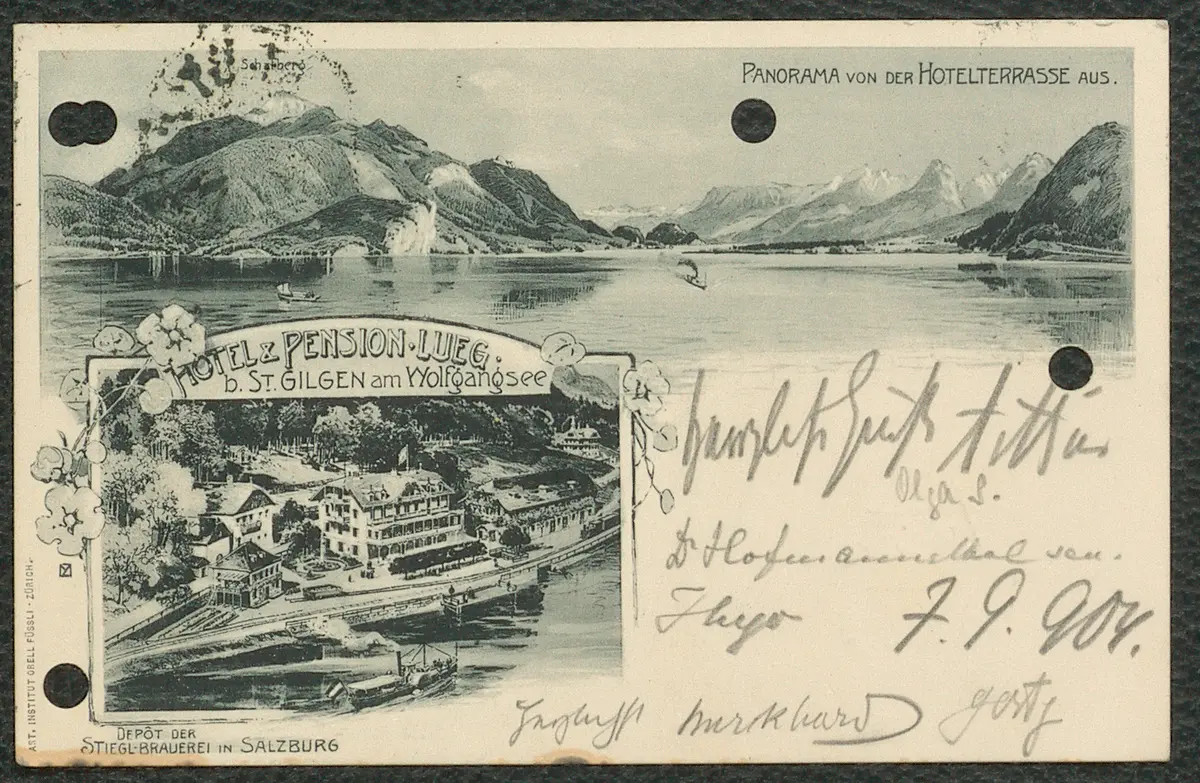 Schafberg
PANORAMA VON DER HOTELTERRASSE AUS.
HOTEL & PENSION·LUEG·
b. ST. GILGEN am Wolfgangsee
Olga S.
Dr Hofmannsthal sen.
Hugo
7. 9. 904.
Herzlichst Burckhard gerty
DEPÔT DER
STIEGL-BRAUEREI IN SALZBURG
AST. INSTITUT ORELL FÜSSLI - ZÜRICH.